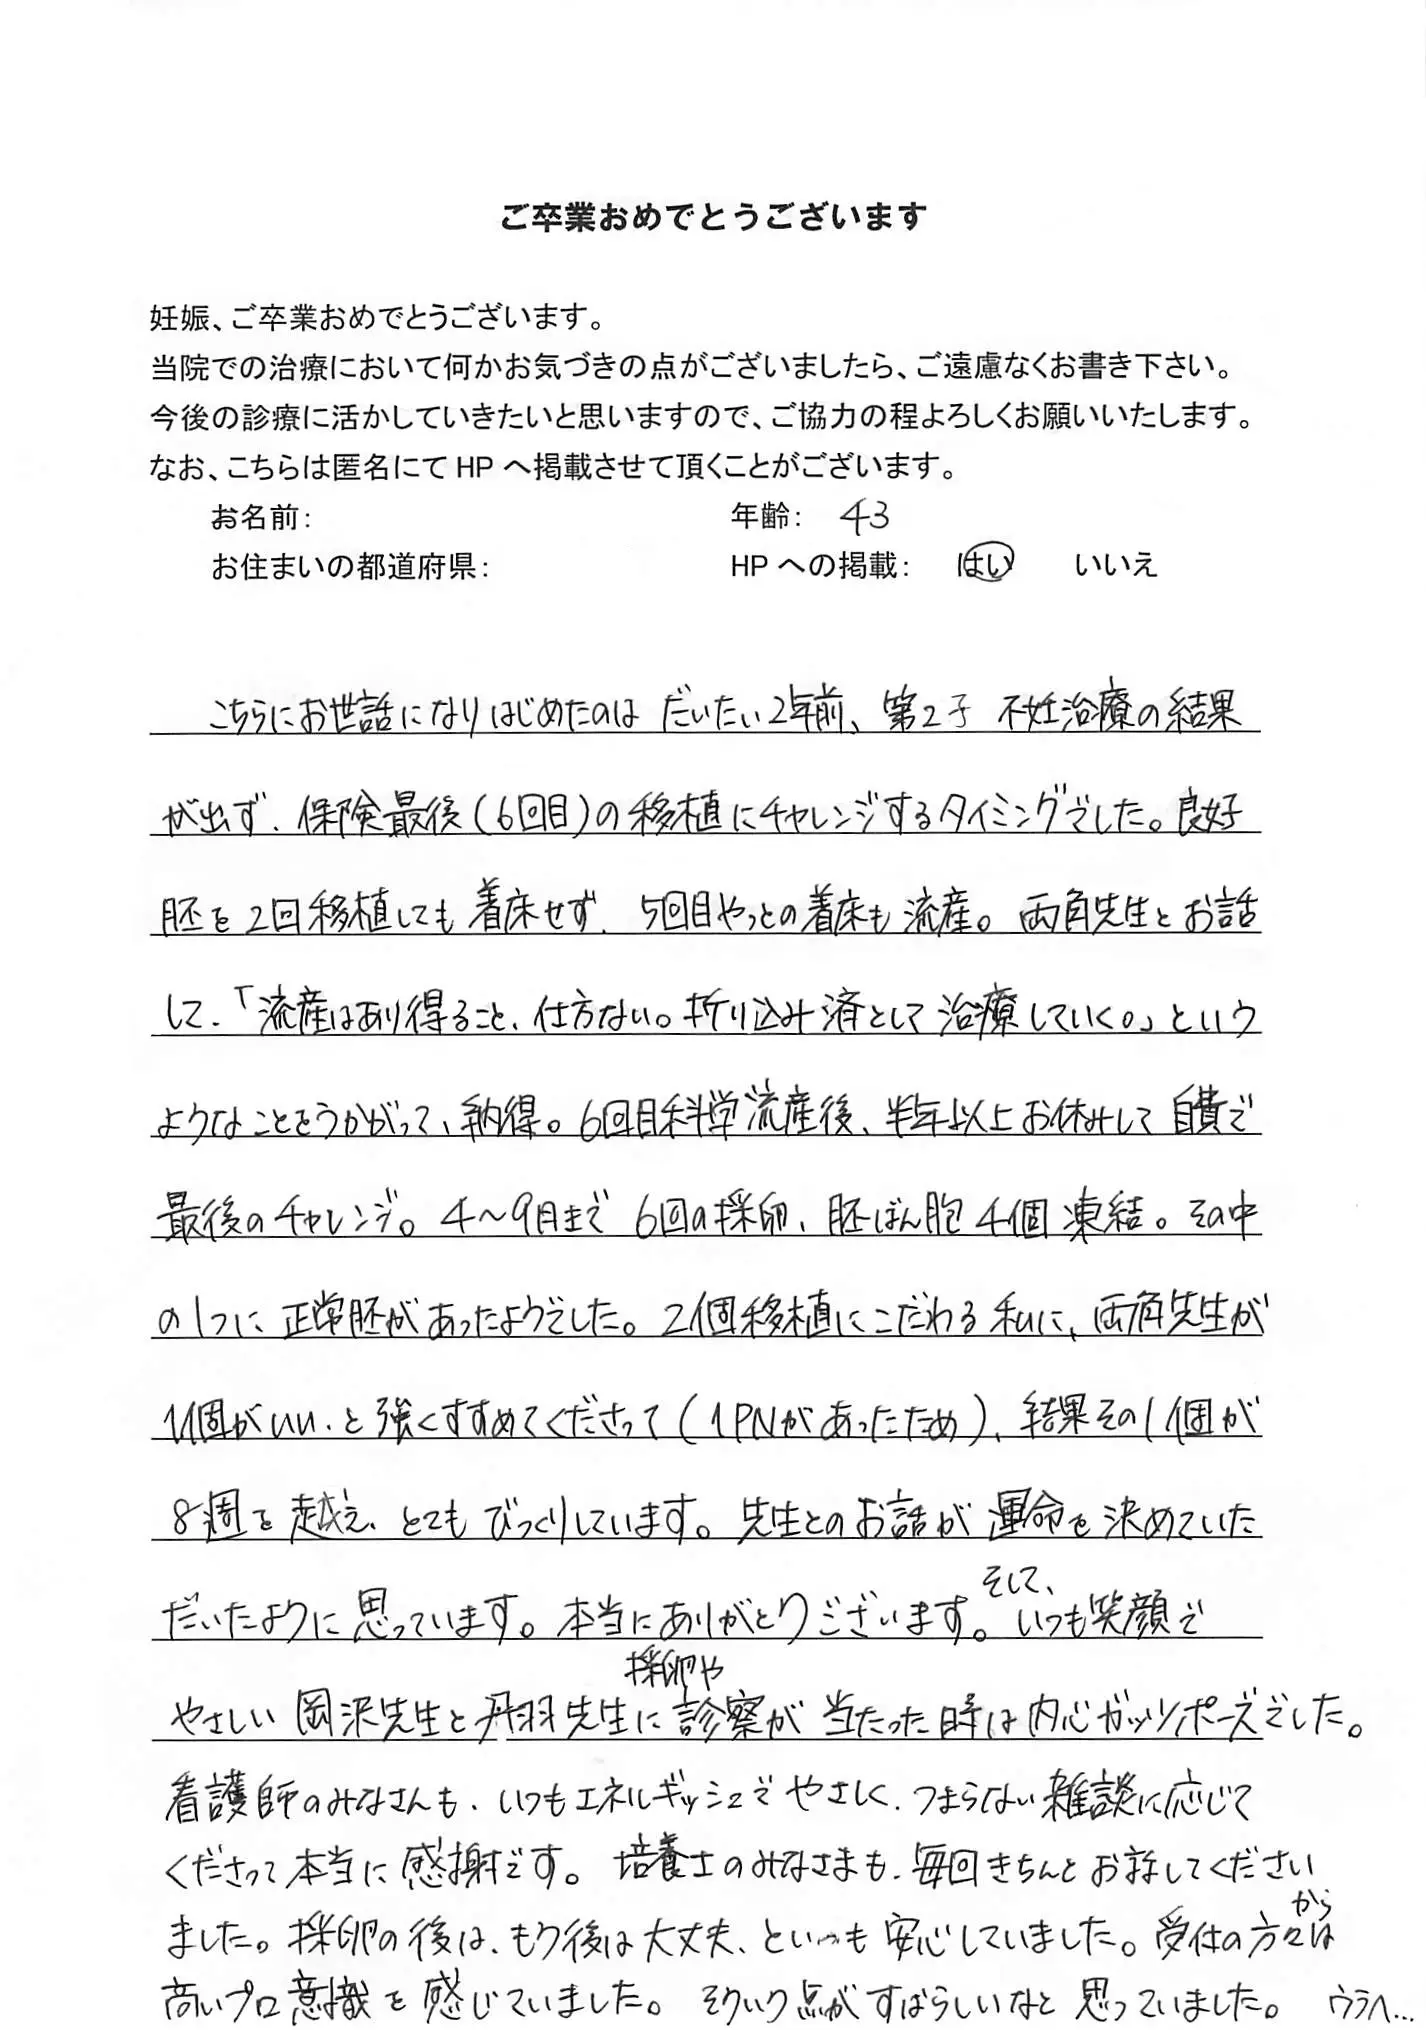 ご卒業おめでとうございます
妊娠、ご卒業おめでとうございます。
当院での治療において何かお気づきの点がございましたら、ご遠慮なくお書き下さい。
今後の診療に活かしていきたいと思いますので、ご協力の程よろしくお願いいたします。
なお、こちらは匿名にて HP へ掲載させて頂くことがございます。
お名前: 年齢: 43
お住まいの都道府県: HP への掲載: はい いいえ
こちらにお世話になりはじめたのは だいたい2年前、第2子 不妊治療の結果
が出ず、保険最後(6回目)の移植にチャレンジするタイミングでした。良好
胚を2回移植しても着床せず、5回目やっとの着床も流産。両角先生とお話
して、「流産はあり得ること、仕方ない。折り込み済として治療していく。」という
ようなことをうかがって、納得。6回目科学流産後、半年以上お休みして自費で
最後のチャレンジ。4〜9月まで 6回の採卵、胚ばん胞4個凍結。その中
の1つに 正常胚があったようでした。2個移植にこだわる私に、両角先生が
1個がいい、と強くすすめてくださって(1PNがあったため)、結果その1個が
8週を越え、とてもびっくりしています。先生とのお話が運命を決めていた
だいたように思っています。本当にありがとうございます。そして、いつも笑顔で
やさしい 岡沢先生と丹羽先生に採卵や診察が 当たった時は内心ガッツポーズでした。
看護師のみなさんも、いつもエネルギッシュでやさしく、つまらない雑談に応じて
くださって本当に感謝です。培養士のみなさまも、毎回きちんとお話してください
ました。採卵の後は、もう後は大丈夫、といつも安心していました。受付の方々からは
高いプロ意識を感じていました。そういう点がすばらしいなと思っていました。 ウラへ…